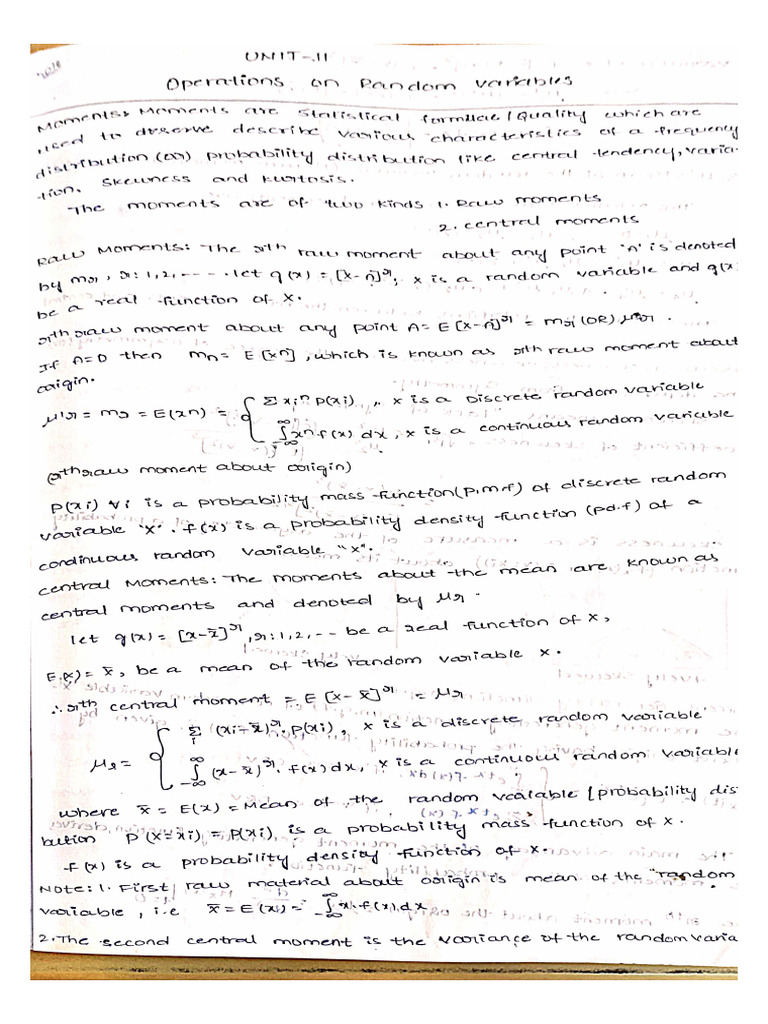 UNIT-II
Operations on Random Variables
Moments: Moments are Statistical formulae/Quality which are
used to deserve describe various characteristics of a frequency
distribution (or) probability distribution like central tendency, varia-
tion, skewness and kurtosis.
The moments are of two kinds 1. Raw moments
2. central moments
Raw Moments: The rth raw moment about any point 'A' is denoted
by mr, r: 1,2,---- . let g(x) = [x-A]^r, x is a random variable and g(x
be a real function of x.
rth raw moment about any point A = E[x-A]^r = mr (OR) μ'r.
If A=0 then mn = E[x^n], which is known as rth raw moment about
origin.
μ'r = mr = E(x^n) = { Σ xi^n P(xi) , x is a Discrete random variable
∫_{-∞}^{∞} x^n f(x) dx, x is a continuous random variable
(rth raw moment about origin)
P(xi) ∀i is a probability mass function (p.m.f) of discrete random
variable 'x'. f(x) is a probability density function (pd.f) of a
condinuous random variable "x".
central Moments: The moments about the mean are known as
central moments and denoted by μr.
let g(x) = [x-x̄]^r, r: 1,2,-- be a real function of x,
E(x) = x̄, be a mean of the random variable x.
∴ rth central moment = E[x-x̄]^r = μr
μr = { Σ_i (xi-x̄)^r. P(xi), x is a discrete random variable
∫_{-∞}^{∞} (x-x̄)^r. f(x) dx, x is a continuous random variable
where x̄ = E(x) = Mean of the random variable / probability dis
bution P(x=xi) = P(xi) is a probability mass function of x.
f(x) is a probability density function of x.
Note: 1. First raw material about origin is mean of the random
variable, i.e x̄ = E(x) = ∫_{-∞}^{∞} x. f(x) dx
2. The second central moment is the variance of the random varia